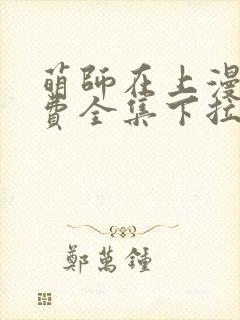 萌師在上漫
費全集下拉
鄭萬鍾